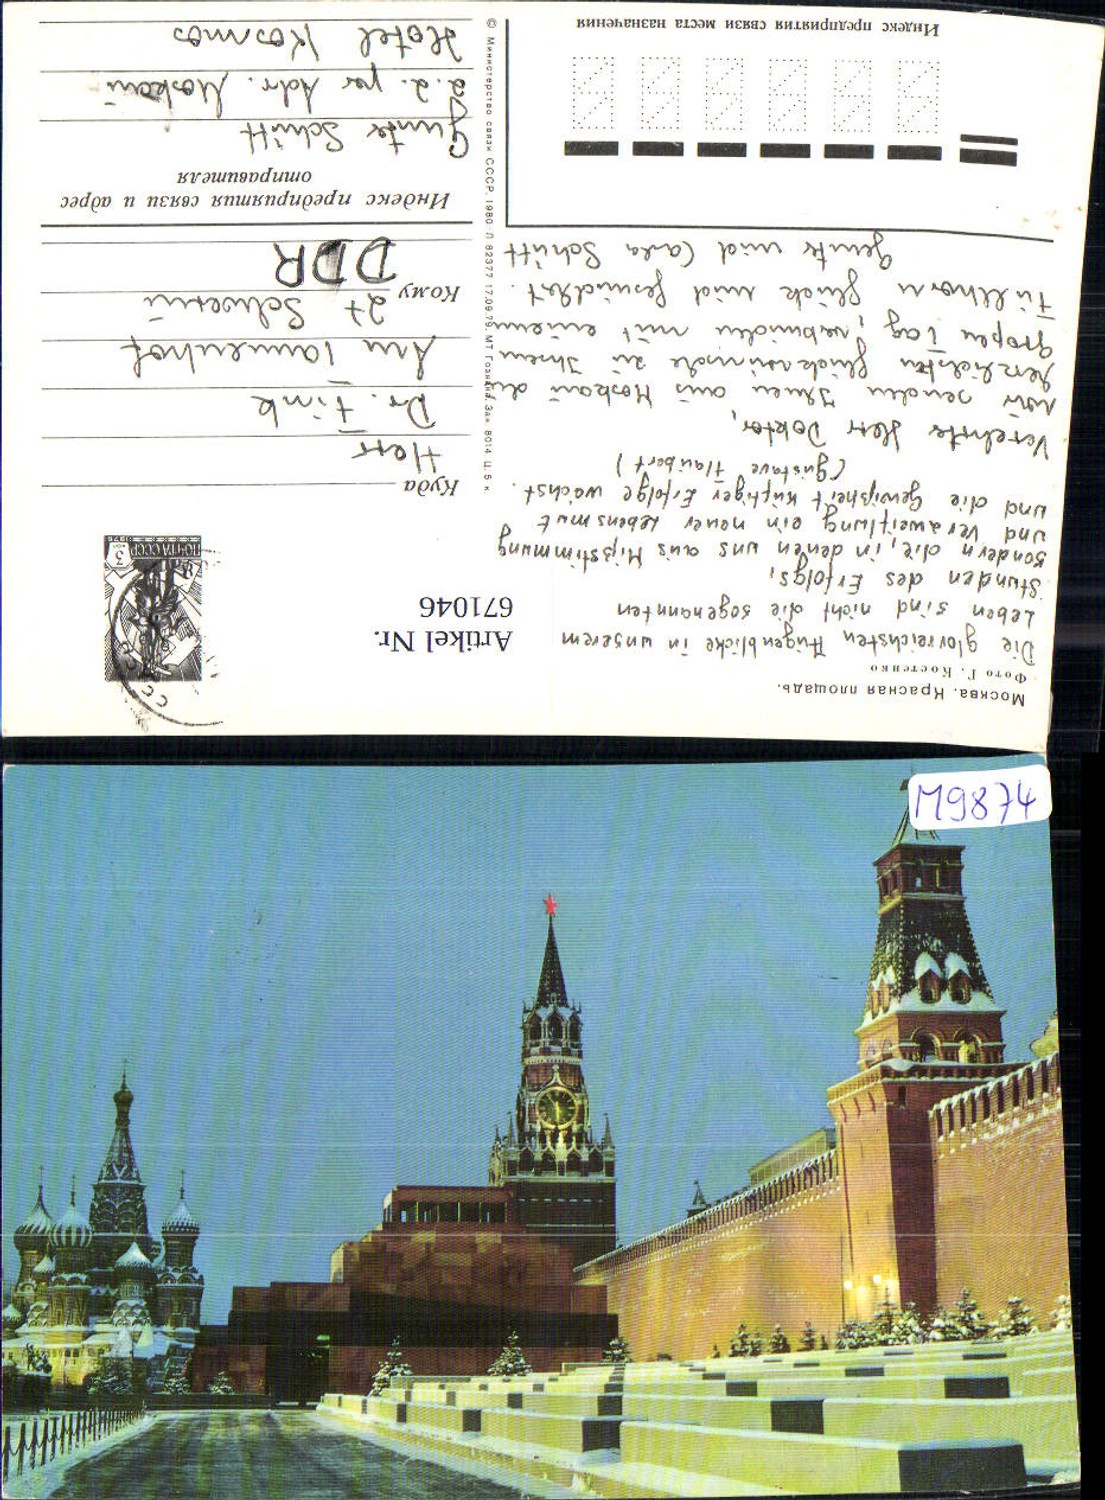 Москва. Красная площадь.
Фото Г. Костенко
Die glorreichsten Augenblicke in unserem
Leben sind nicht die sogenannten
Stunden des Erfolgs,
sondern die, in denen uns aus Mißstimmung
und Verzweiflung ein neuer Lebensmut
und die Gewißheit künftiger Erfolge wächst.
(Gustave Flaubert)
Verehrter Herr Doktor,
wir senden Ihnen aus Moskau die
herzlichsten Glückwünsche zu Ihrem
großen Tag, verbunden mit einem
Füllhorn Glück und Gesundheit.
Günter und Carla Schütt
Artikel Nr.
671046
ПОЧТА СССР
3
Куда
Herr
Dr. Fink
Am Tannenhof
27 Schwerin
Кому
DDR
Индекс предприятия связи и адрес
отправителя
Günter Schütt
z.Z. per Adr. Moskau
Hotel Kosmos
© Министерство связи СССР, 1980 Л 82377 17.09.79. МТ Гознака, Зак. 8014. Ц. 5 к.
Индекс предприятия связи места назначения
M9874